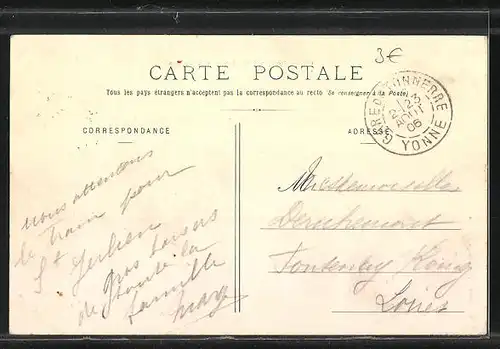 3€
CARTE POSTALE
Tous les pays étrangers n'acceptent pas la correspondance au recto (se renseigner à la Poste)
CORRESPONDANCE
ADRESSE
GARE DE TONNERRE
23
AOUT
06
YONNE
Nous attendons
le train pour
St Julien
Gros baisers
de toute la
famille
Mademoiselle